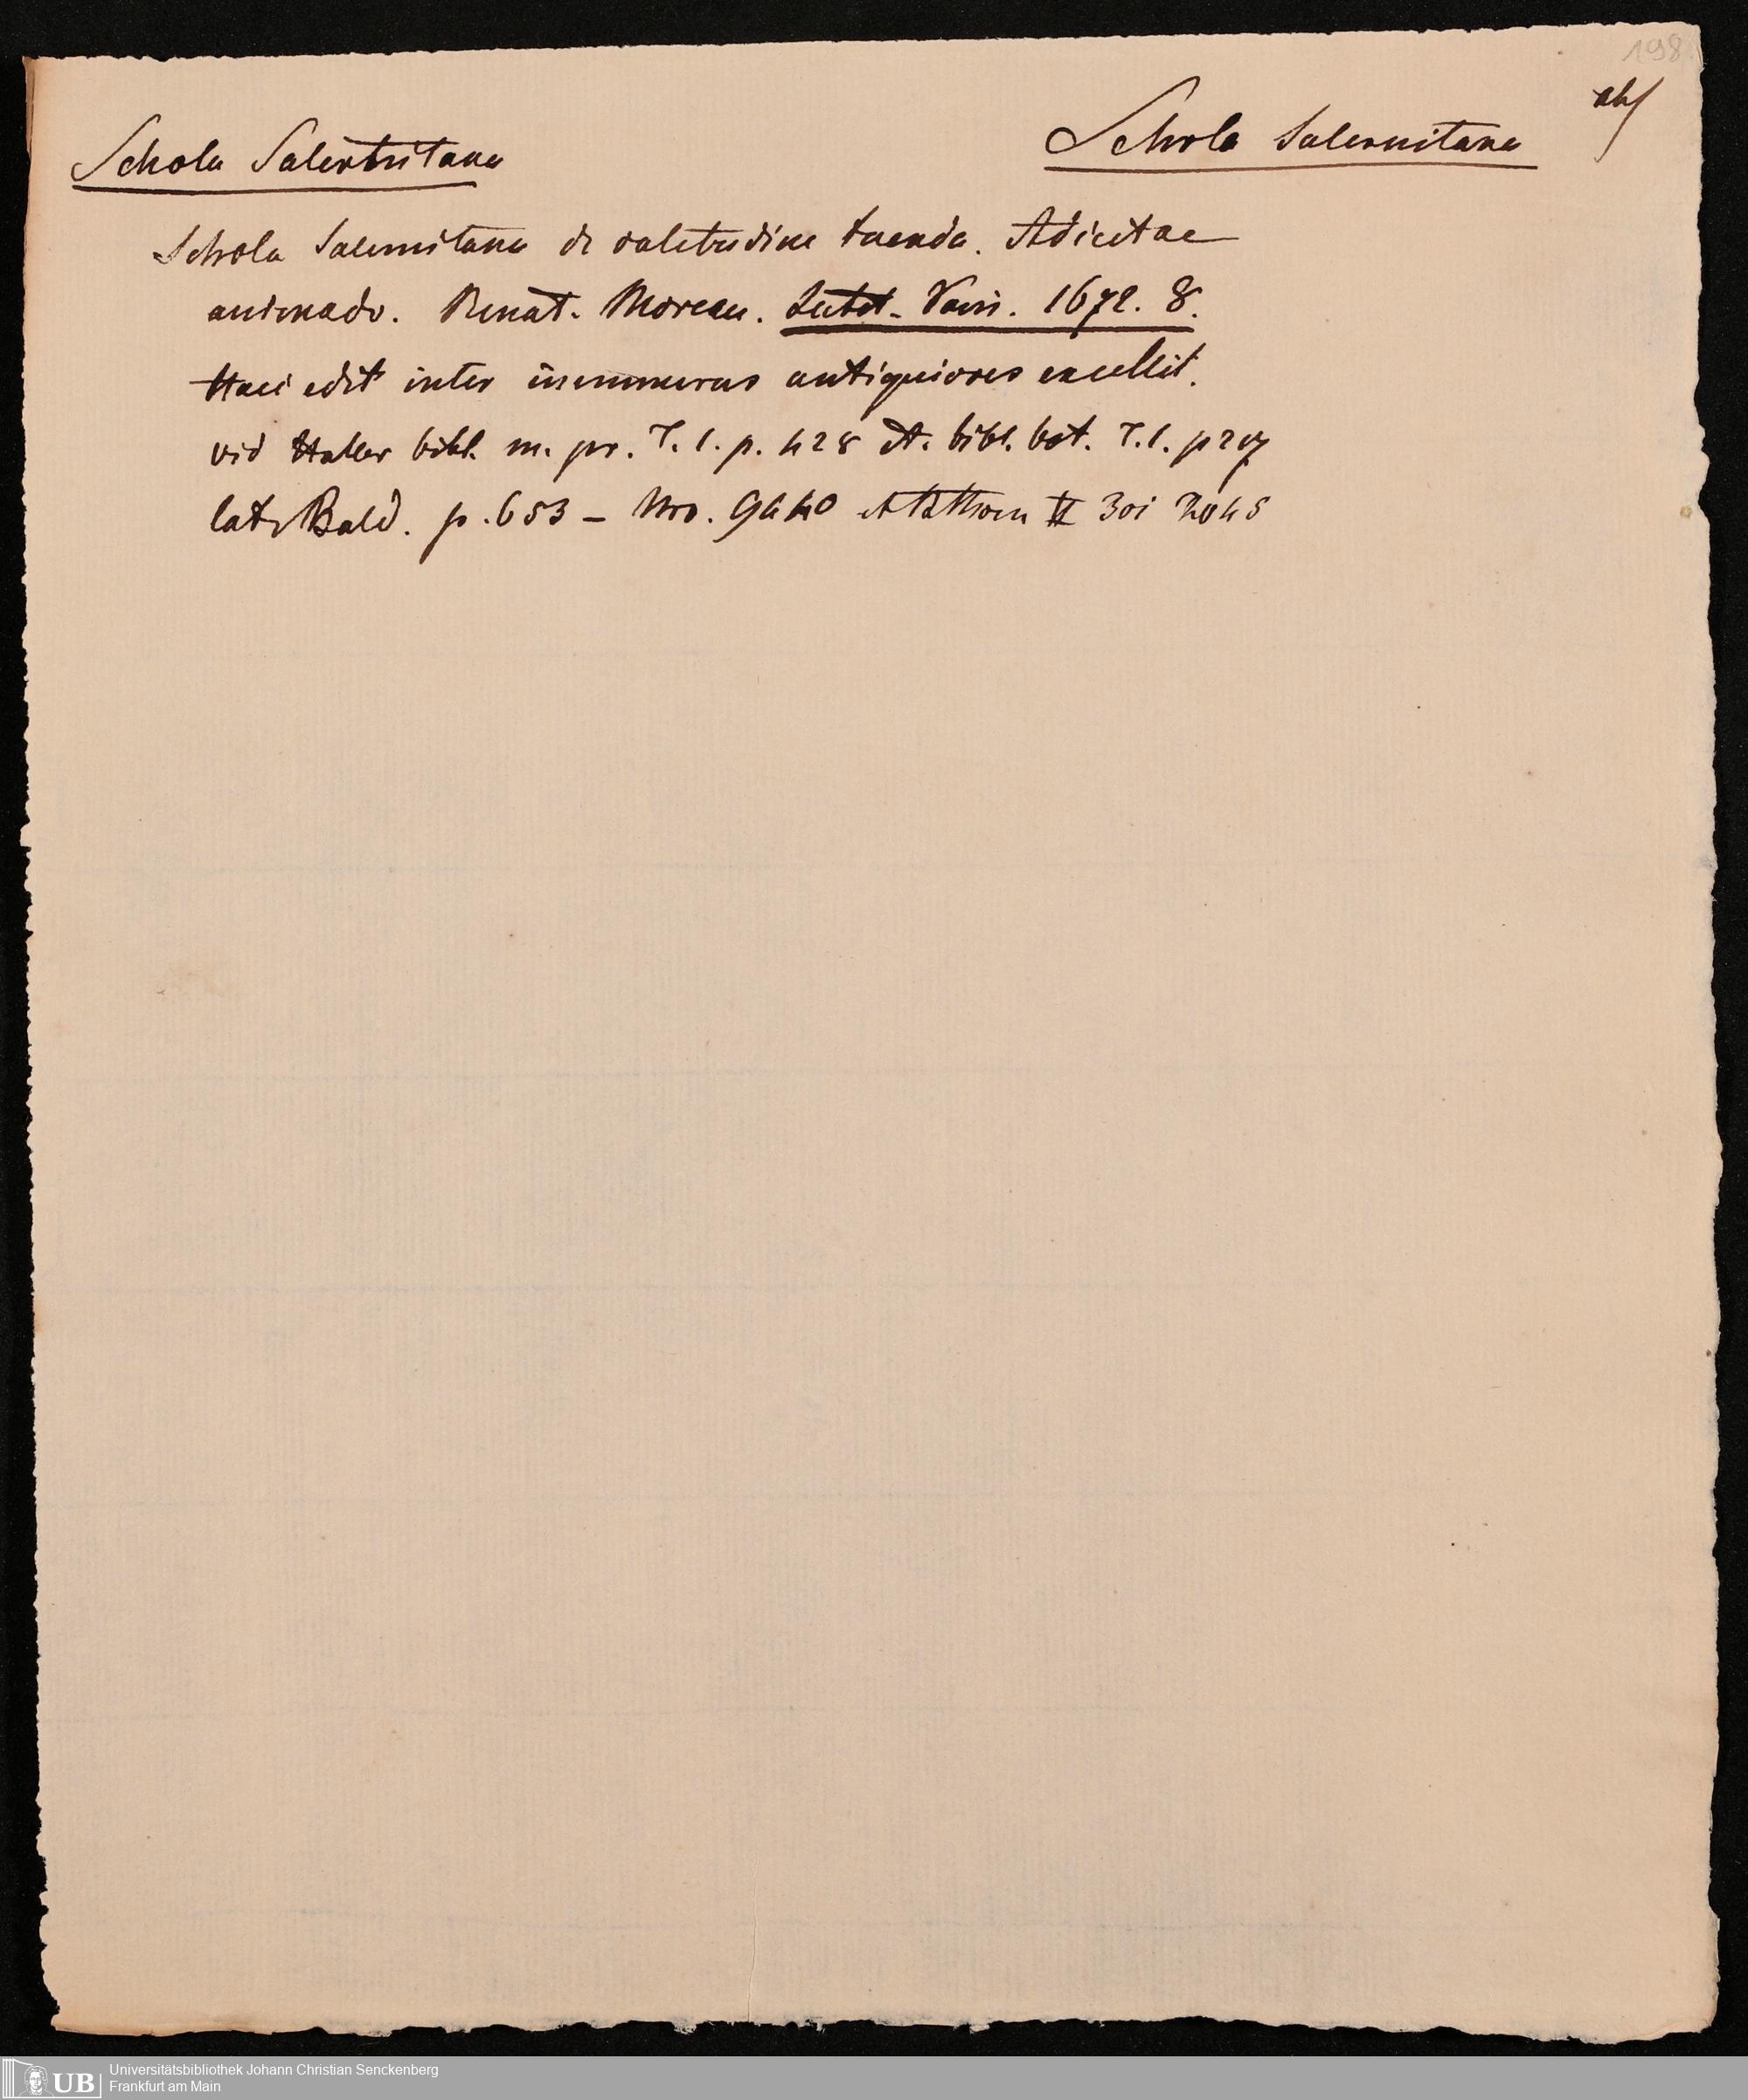 198
ah/
Schola Salernitana
Schola Salernitana
Schola Salernitana de valetudine tuenda. Adiectae
animadv. Renat. Moreau. Lutet. Paris. 1672. 8.
Haec edit inter innumeras antiquiores excellit.
vid Haller bibl. m. pr. T. 1. p. 428 et. bibl. bot. T. 1. p 217
cat. Bald. p. 653 - Nro. 9440 II 301
UB Universitätsbibliothek Johann Christian Senckenberg
Frankfurt am Main